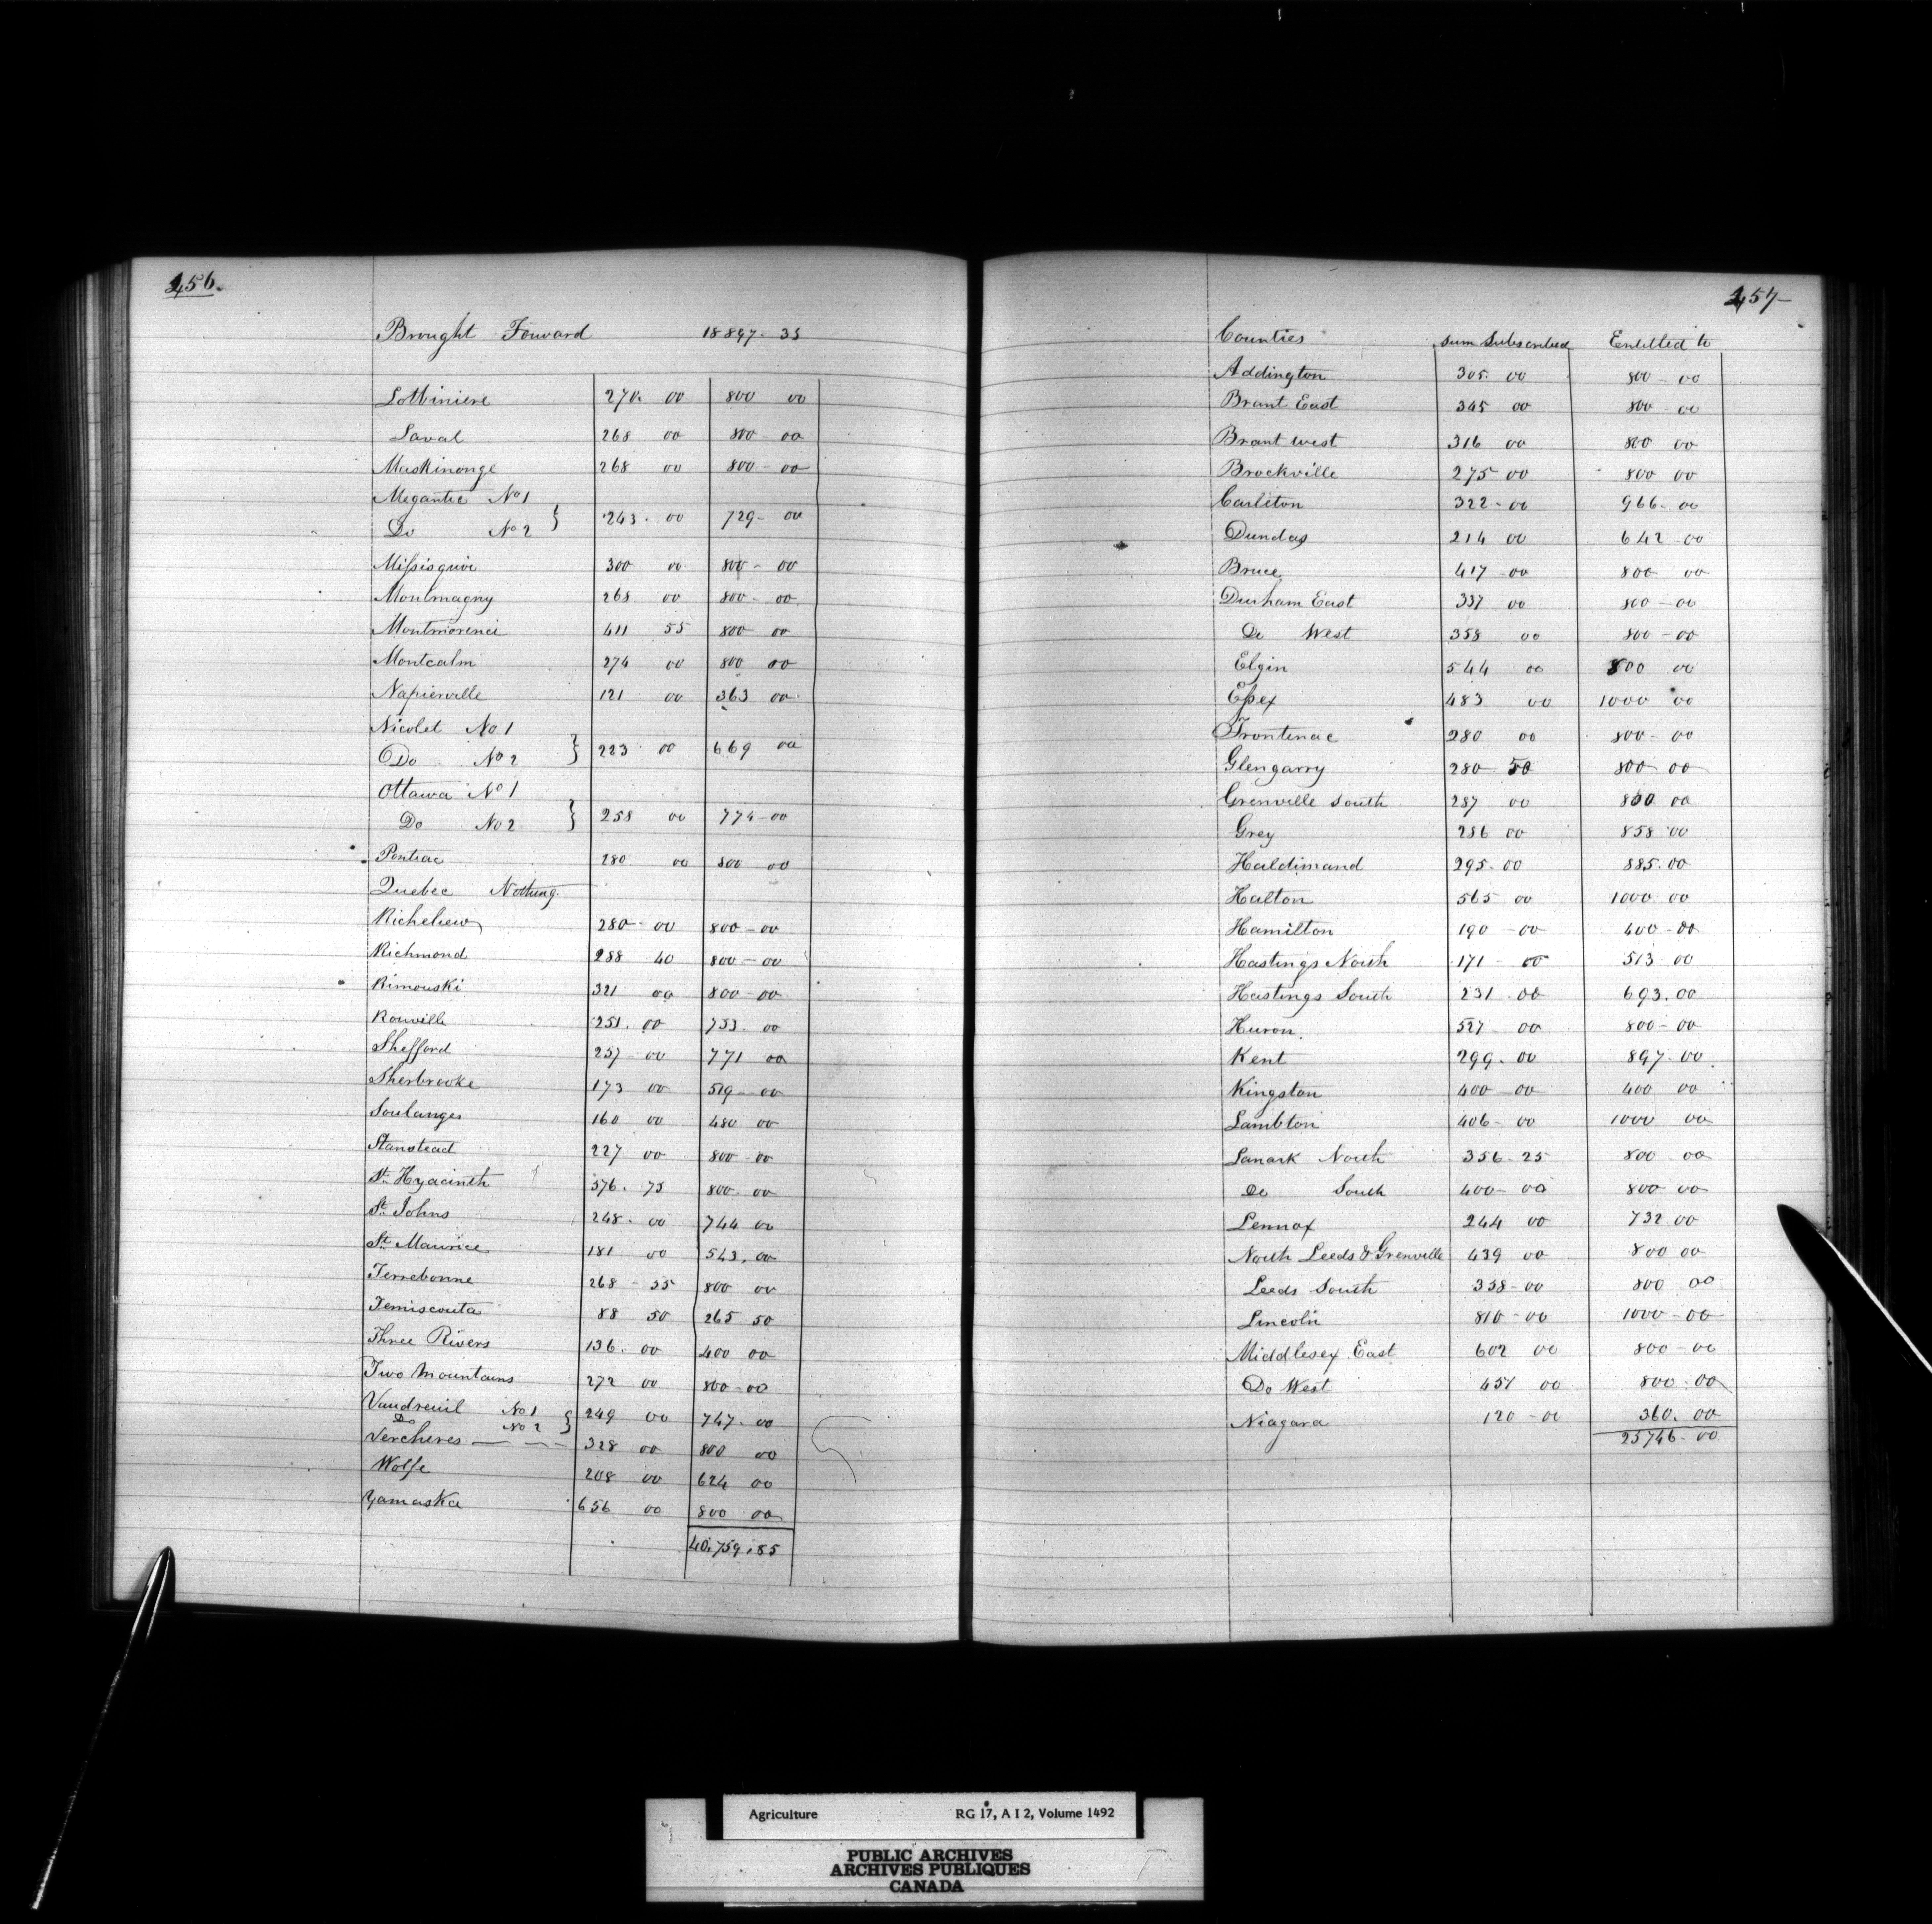 456.
Brought Forward 18897-35
Lotbiniere 270. 00 800 00
Laval 268 00 800-00
Maskinonge 268 00 800-00
Megantic No 1
Do No 2 } 243. 00 729- 00
Missisquoi 300 00 800- 00
Montmagny 268 00 800- 00
Montmorenci 411 55 800- 00
Montcalm 274 00 800 00
Napierville 121 00 363 00
Nicolet No 1
Do No 2 } 223 00 669 00
Ottawa No 1
Do No 2 } 258 00 774-00
Pontiac 280 00 800 00
Quebec Nothing
Richelieu 280- 00 800-00
Richmond 288 40 800-00
Rimouski 321 00 800-00
Rouville 251. 00 753. 00
Shefford 257 00 771 00
Sherbrooke 173 00 519-00
Soulanges 160 00 480 00
Stanstead 227 00 800-00
St. Hyacinth 376. 75 800- 00
St. Johns 248- 00 744 00
St. Maurice 181 00 543. 00
Terrebonne 268-55 800 00
Temiscouta 88 50 265 50
Three Rivers 136. 00 400 00
Two Mountains 272 00 800-00
Vaudreuil No 1
Do No 2 } 249 00 747. 00
Vercheres 328 00 800 00
Wolfe 208 00 624 00
Yamaska 656 00 800 00
40,759.85
457-
Counties Sum Subscribed Entitled to
Addington 305. 00 800-00
Brant East 345 00 800-00
Brant West 316 00 800 00
Brockville 275 00 800 00
Carleton 322-00 966-00
Dundas 214 00 642-00
Bruce 417-00 800 00
Durham East 337 00 800-00
Do West 358 00 800-00
Elgin 544 00 800 00
Essex 483 00 1000 00
Frontenac 280 00 800-00
Glengarry 280 50 800 00
Grenville South 287 00 800 00
Grey 286 00 858 00
Haldimand 295-00 885.00
Halton 565 00 1000 00
Hamilton 190-00 400-00
Hastings North 171-00 513 00
Hastings South 231-00 693.00
Huron 527 00 800-00
Kent 299. 00 897-00
Kingston 400-00 400 00
Lambton 406-00 1000 00
Lanark North 356-25 800 00
Do South 400-00 800 00
Lennox 244 00 732 00
North Leeds & Grenville 439 00 800 00
Leeds South 358-00 800 00
Lincoln 810-00 1000-00
Middlesex East 602 00 800-00
Do West 451 00 800-00
Niagara 120-00 360. 00
25746-00
Agriculture RG 17, A I 2, Volume 1492
PUBLIC ARCHIVES
ARCHIVES PUBLIQUES
CANADA